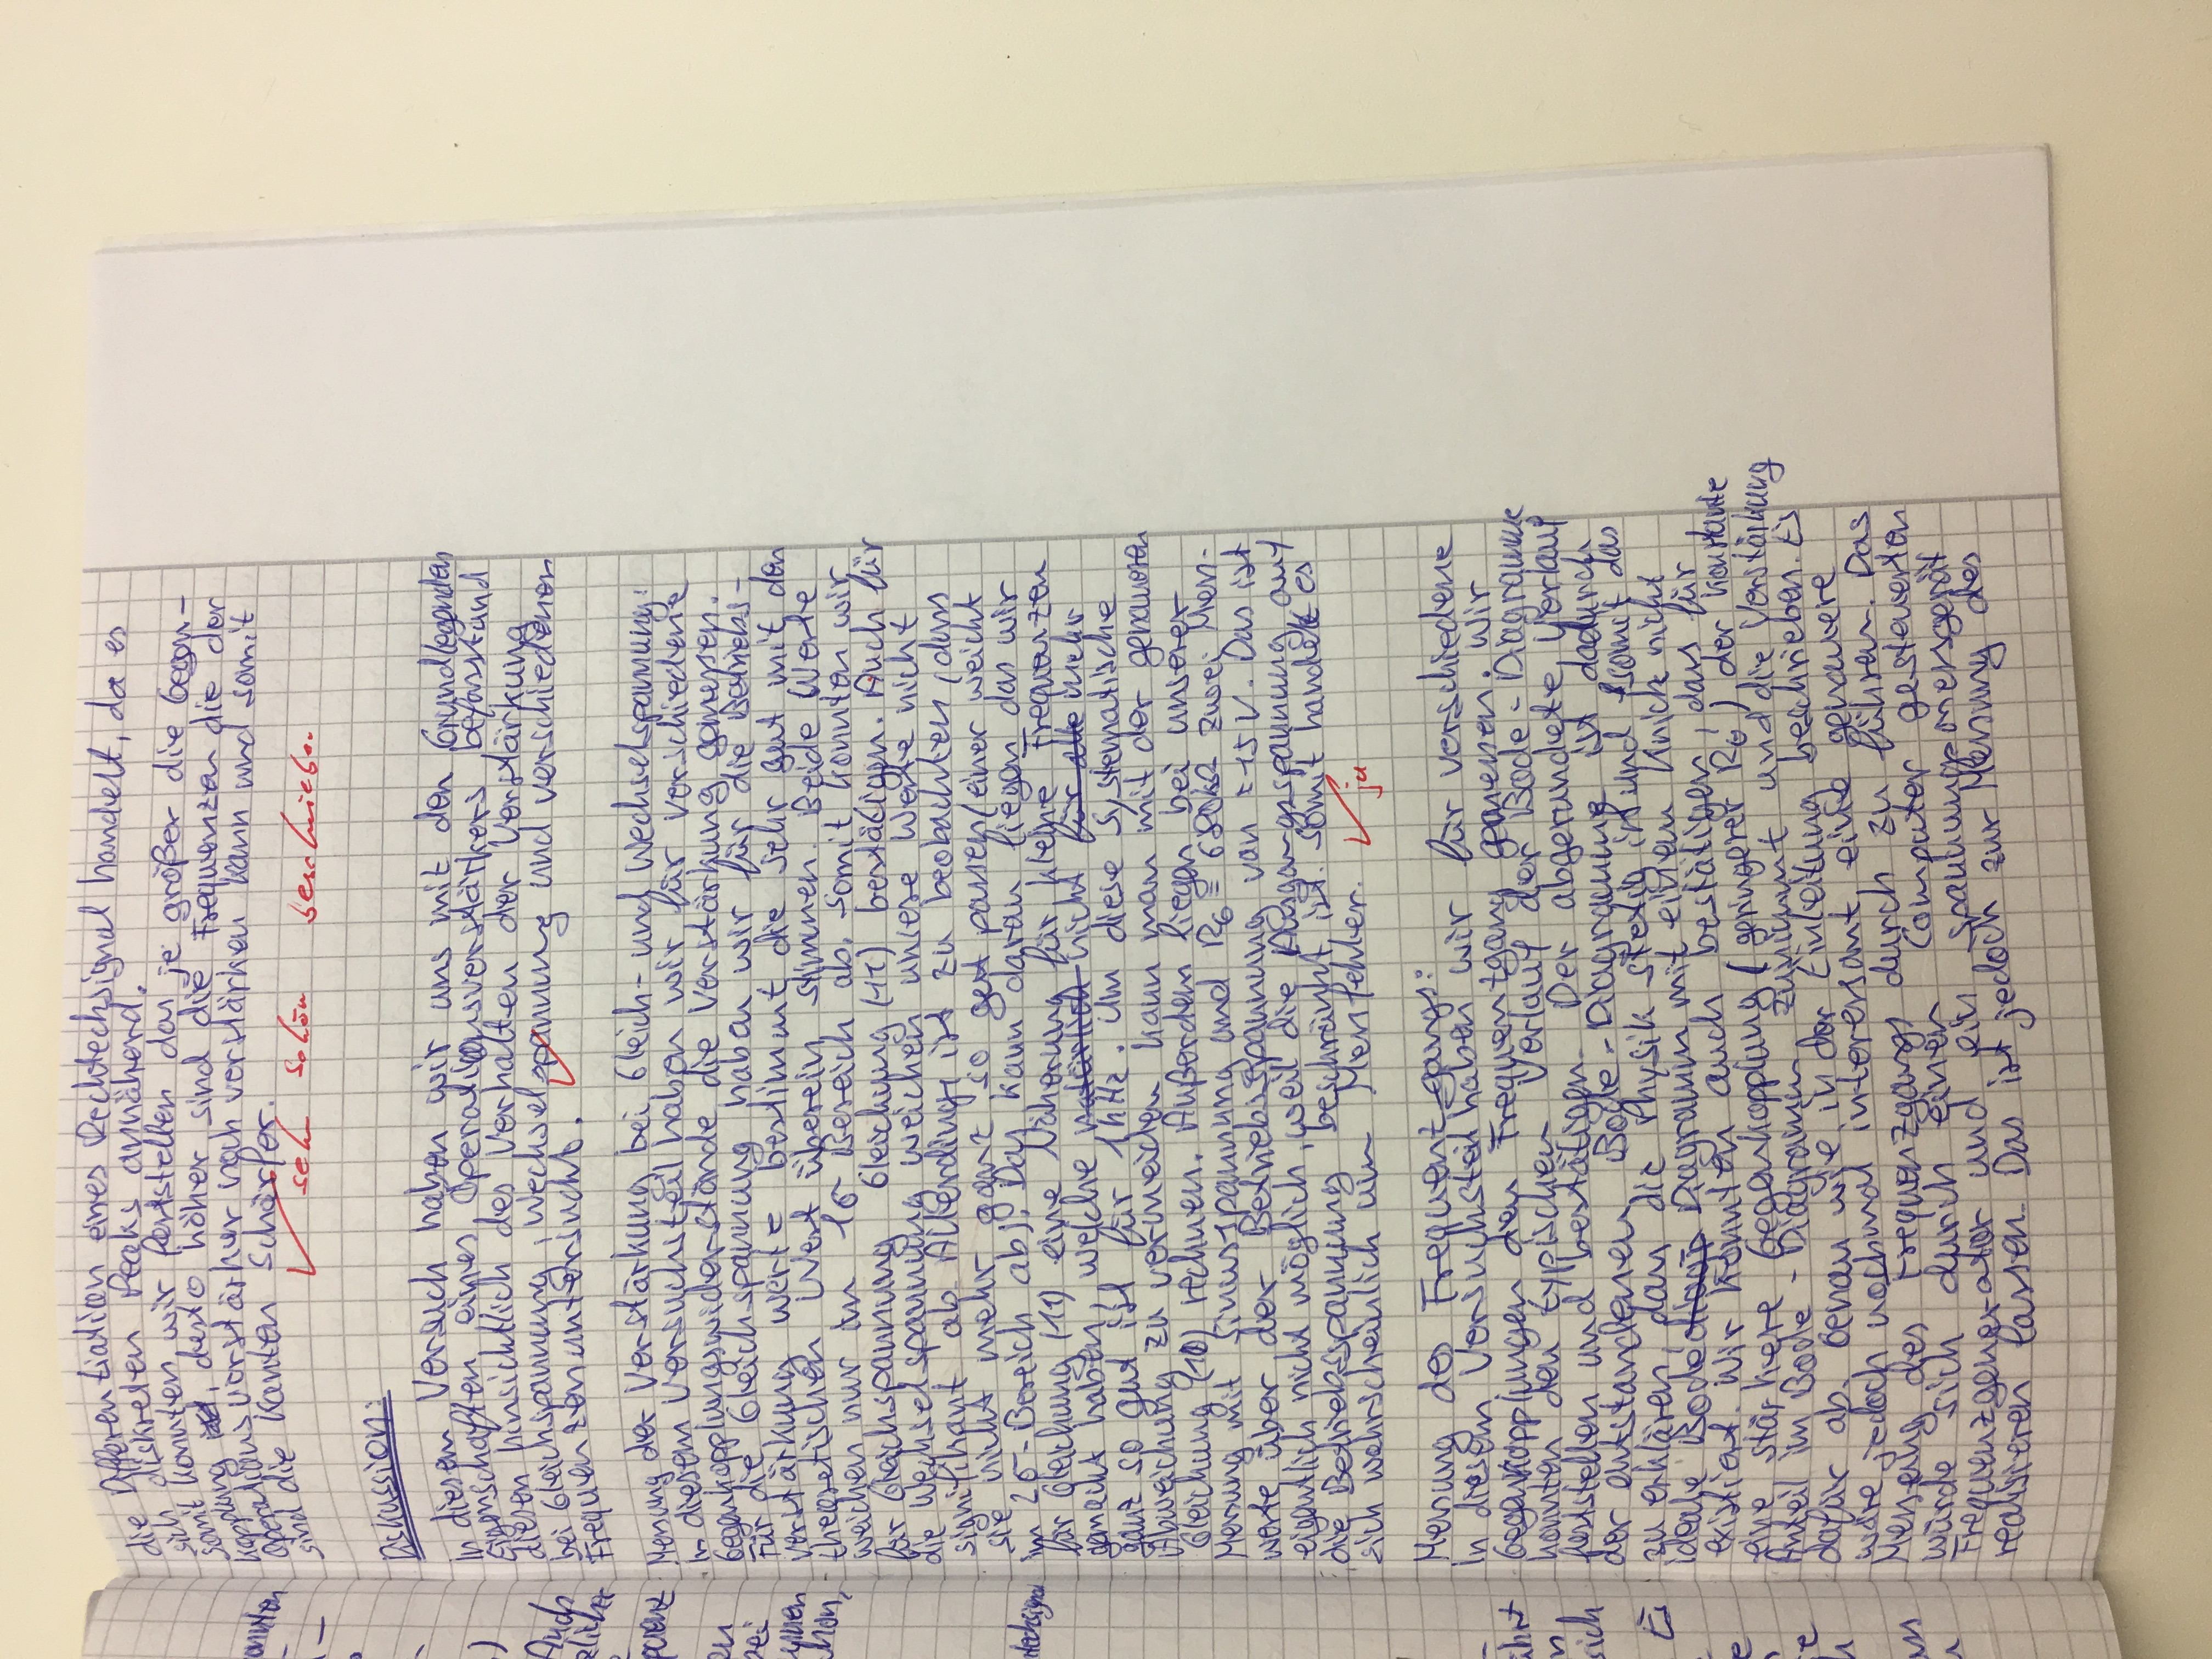 die Differentiation eines Rechtecksignal handelt, da es
sich diskreten Peaks annähernd.
Somit konnten wir feststellen das je größer die Gegen-
kopplung ist, desto höher sind die Frequenzen die der
Operationsverstärker noch verstärken kann und somit
sind die Kanten schärfer.
✓ sehr schön beschrieben.
Diskussion:
In diesem Versuch haben wir uns mit den Grundlegenden
Eigenschaften eines Operationsverstärkers befasst und
diesen hinsichtlich des Verhalten der Verstärkung
bei Gleichspannung, Wechselspannung und verschiedenen
Frequenzen untersucht. ✓
Messung der Verstärkung bei Gleich- und Wechselspannung:
In diesem Versuchsteil haben wir für verschiedene
Gegenkopplungswiderstände die Verstärkung gemessen.
Für die Gleichspannung haben wir für die Betriebs-
verstärkung werte bestimmt die sehr gut mit den
theoretischen Wert überein stimmen. Beide Werte
weichen nur im 1σ-Bereich ab. Somit konnten wir
für Gleichspannung Gleichung (11) bestätigen. Auch für
die Wechselspannung weichen unsere Werte nicht
signifikant ab. Allerdings ist zu beobachten, dass
sie nicht mehr ganz so gut passen (einer weicht
im 2σ-Bereich ab). Das kann daran liegen das wir
für Gleichung (11) eine Näherung für kleine Frequenzen
gemacht haben, welche natürlich nicht für alle mehr
ganz so gut ist für 1kHz. Um diese Systematische
Abweichung zu vermeiden kann man mit der genaueren
Gleichung (10) rechnen. Außerdem liegen bei unserer
Messung mit Sinusspannung und R_G = 680kΩ zwei Mess-
werte über der Betriebsspannung von ±15V. Das ist
eigentlich nicht möglich, weil die Ausgangsspannung auf
die Betriebsspannung beschränkt ist. Somit handelt es
sich wahrscheinlich um Messfehler. ✓ ja
Messung des Frequenzgangs:
In diesem Versuchsteil haben wir für verschiedene
Gegenkopplungen den Frequenzgang gemessen. Wir
konnten den typischen Verlauf der Bode-Diagramme
feststellen und bestätigen. Der abgerundete Verlauf
der entstandenen Bode-Diagramme ist dadurch
zu erklären, dass die Physik stetig ist und somit das
ideale Bode Diagramm mit einem Knick nicht
existiert. Wir konnten auch bestätigen, dass für
eine stärkere Gegenkopplung (geringerer R_G) der konstante
Anteil im Bode-Diagramm zunimmt und die Verstärkung
dafür ab. Genau wie in der Einleitung beschrieben. Es
wäre jedoch nochmal interessant eine genauere
Messung des Frequenzgangs durch zu führen. Das
würde sich durch einen Computer gesteuerten
Frequenzgenerator und ein Spannungsmessgerät
realisieren lassen. Das ist jedoch zur Messung des